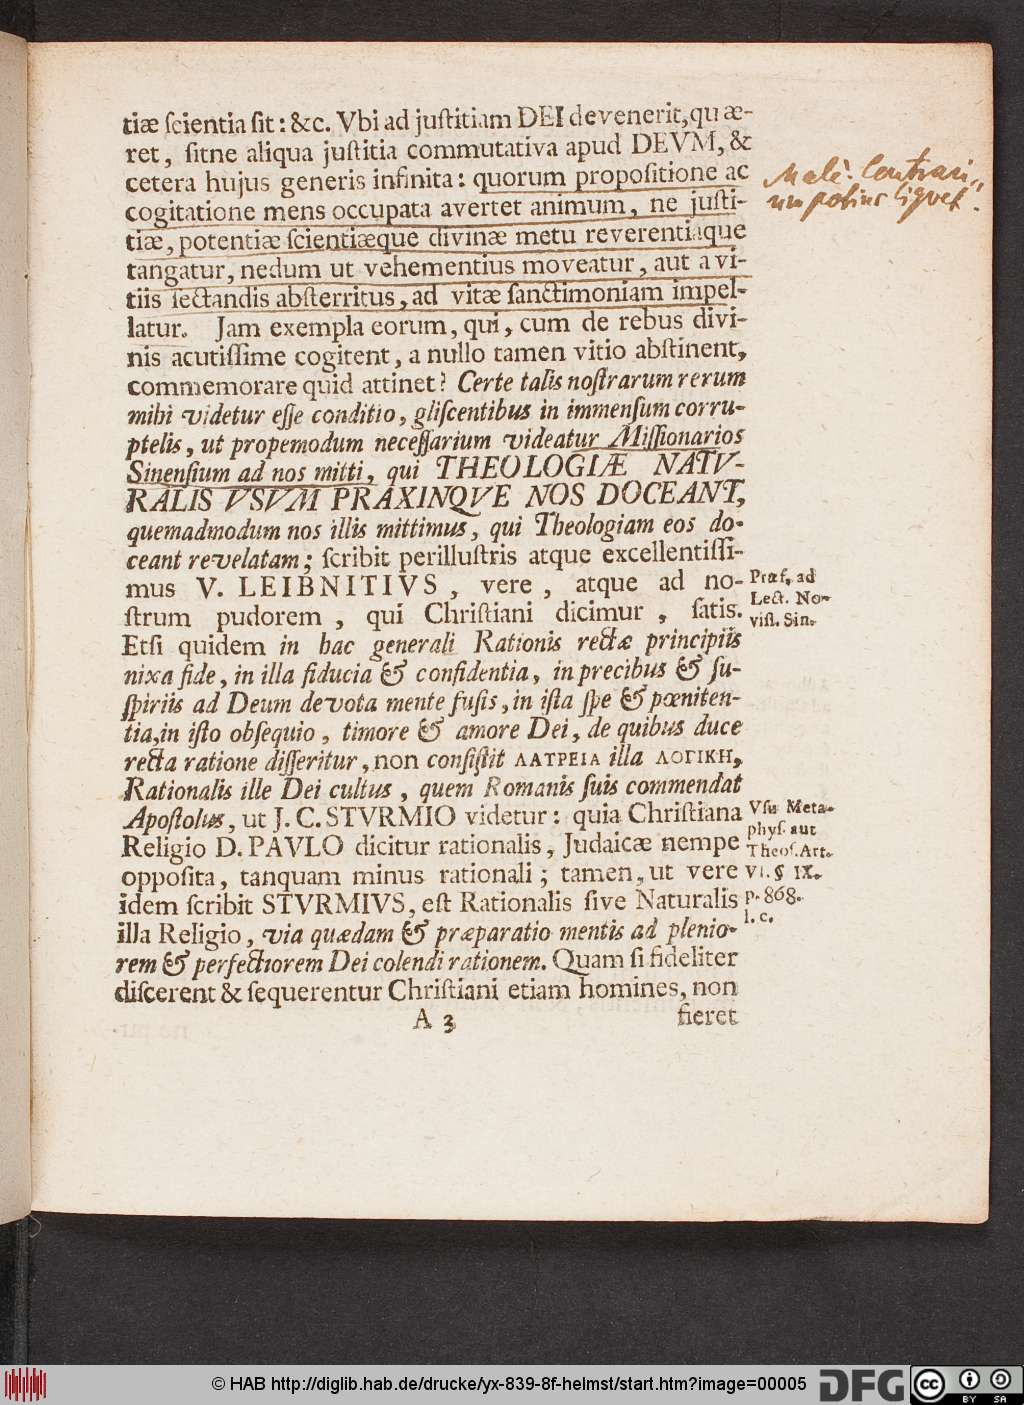 tiæ ſcientia ſit: &c. Vbi ad juſtitiam DEI devenerit, quæ-
ret, ſitne aliqua juſtitia commutativa apud DEVM, &
cetera hujus generis infinita: quorum propoſitione ac
cogitatione mens occupata avertet animum, ne juſti-
tiæ, potentiæ ſcientiæque divinæ metu reverentiaque
tangatur, nedum ut vehementius moveatur, aut a vi-
tiis ſectandis abſterritus, ad vitæ ſanctimoniam impel-
latur. Jam exempla eorum, qui, cum de rebus divi-
nis acutiſſime cogitent, a nullo tamen vitio abſtinent,
commemorare quid attinet? Certe talis noſtrarum rerum
mihi videtur eſſe conditio, gliſcentibus in immenſum corru-
ptelis, ut propemodum neceſſarium videatur Miſſionarios
Sinenſium ad nos mitti, qui THEOLOGIÆ NATV-
RALIS VSVM PRAXINQVE NOS DOCEANT,
quemadmodum nos illis mittimus, qui Theologiam eos do-
ceant revelatam; ſcribit perilluſtris atque excellentiſſi-
mus V. LEIBNITIVS, vere, atque ad no-
ſtrum pudorem, qui Chriſtiani dicimur, ſatis.
Etſi quidem in hac generali Rationis rectæ principiis
nixa fide, in illa fiducia & confidentia, in precibus & ſu-
ſpiriis ad Deum devota mente fuſis, in iſta ſpe & pœniten-
tia, in iſto obſequio, timore & amore Dei, de quibus duce
recta ratione diſſeritur, non conſiſtit ΛΑΤΡΕΙΑ illa ΛΟΓΙΚΗ,
Rationalis ille Dei cultus, quem Romanis ſuis commendat
Apoſtolus, ut J. C. STVRMIO videtur: quia Chriſtiana
Religio D. PAVLO dicitur rationalis, Judaicæ nempe
oppoſita, tanquam minus rationali; tamen, ut vere
idem ſcribit STVRMIVS, eſt Rationalis ſive Naturalis
illa Religio, via quædam & præparatio mentis ad plenio-
rem & perfectiorem Dei colendi rationem. Quam ſi fideliter
diſcerent & ſequerentur Chriſtiani etiam homines, non
A 3 fieret
Malè. Contrari,,
um potius liquet.
Præf. ad
Lect. No-
viſſ. Sin.
Vſu Meta-
phyſ. aut
Theoſ. Art.
VI. § IX.
p. 868.
l. c.
© HAB http://diglib.hab.de/drucke/yx-839-8f-helmst/start.htm?image=00005
DFG
cc
BY SA